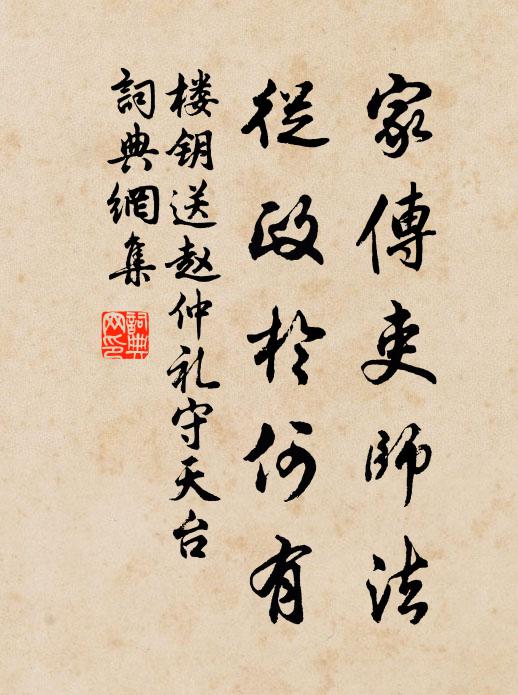 家傳吏師法
從政於何有
楼钥送赵仲礼守天台
詞典網集
詞典網印